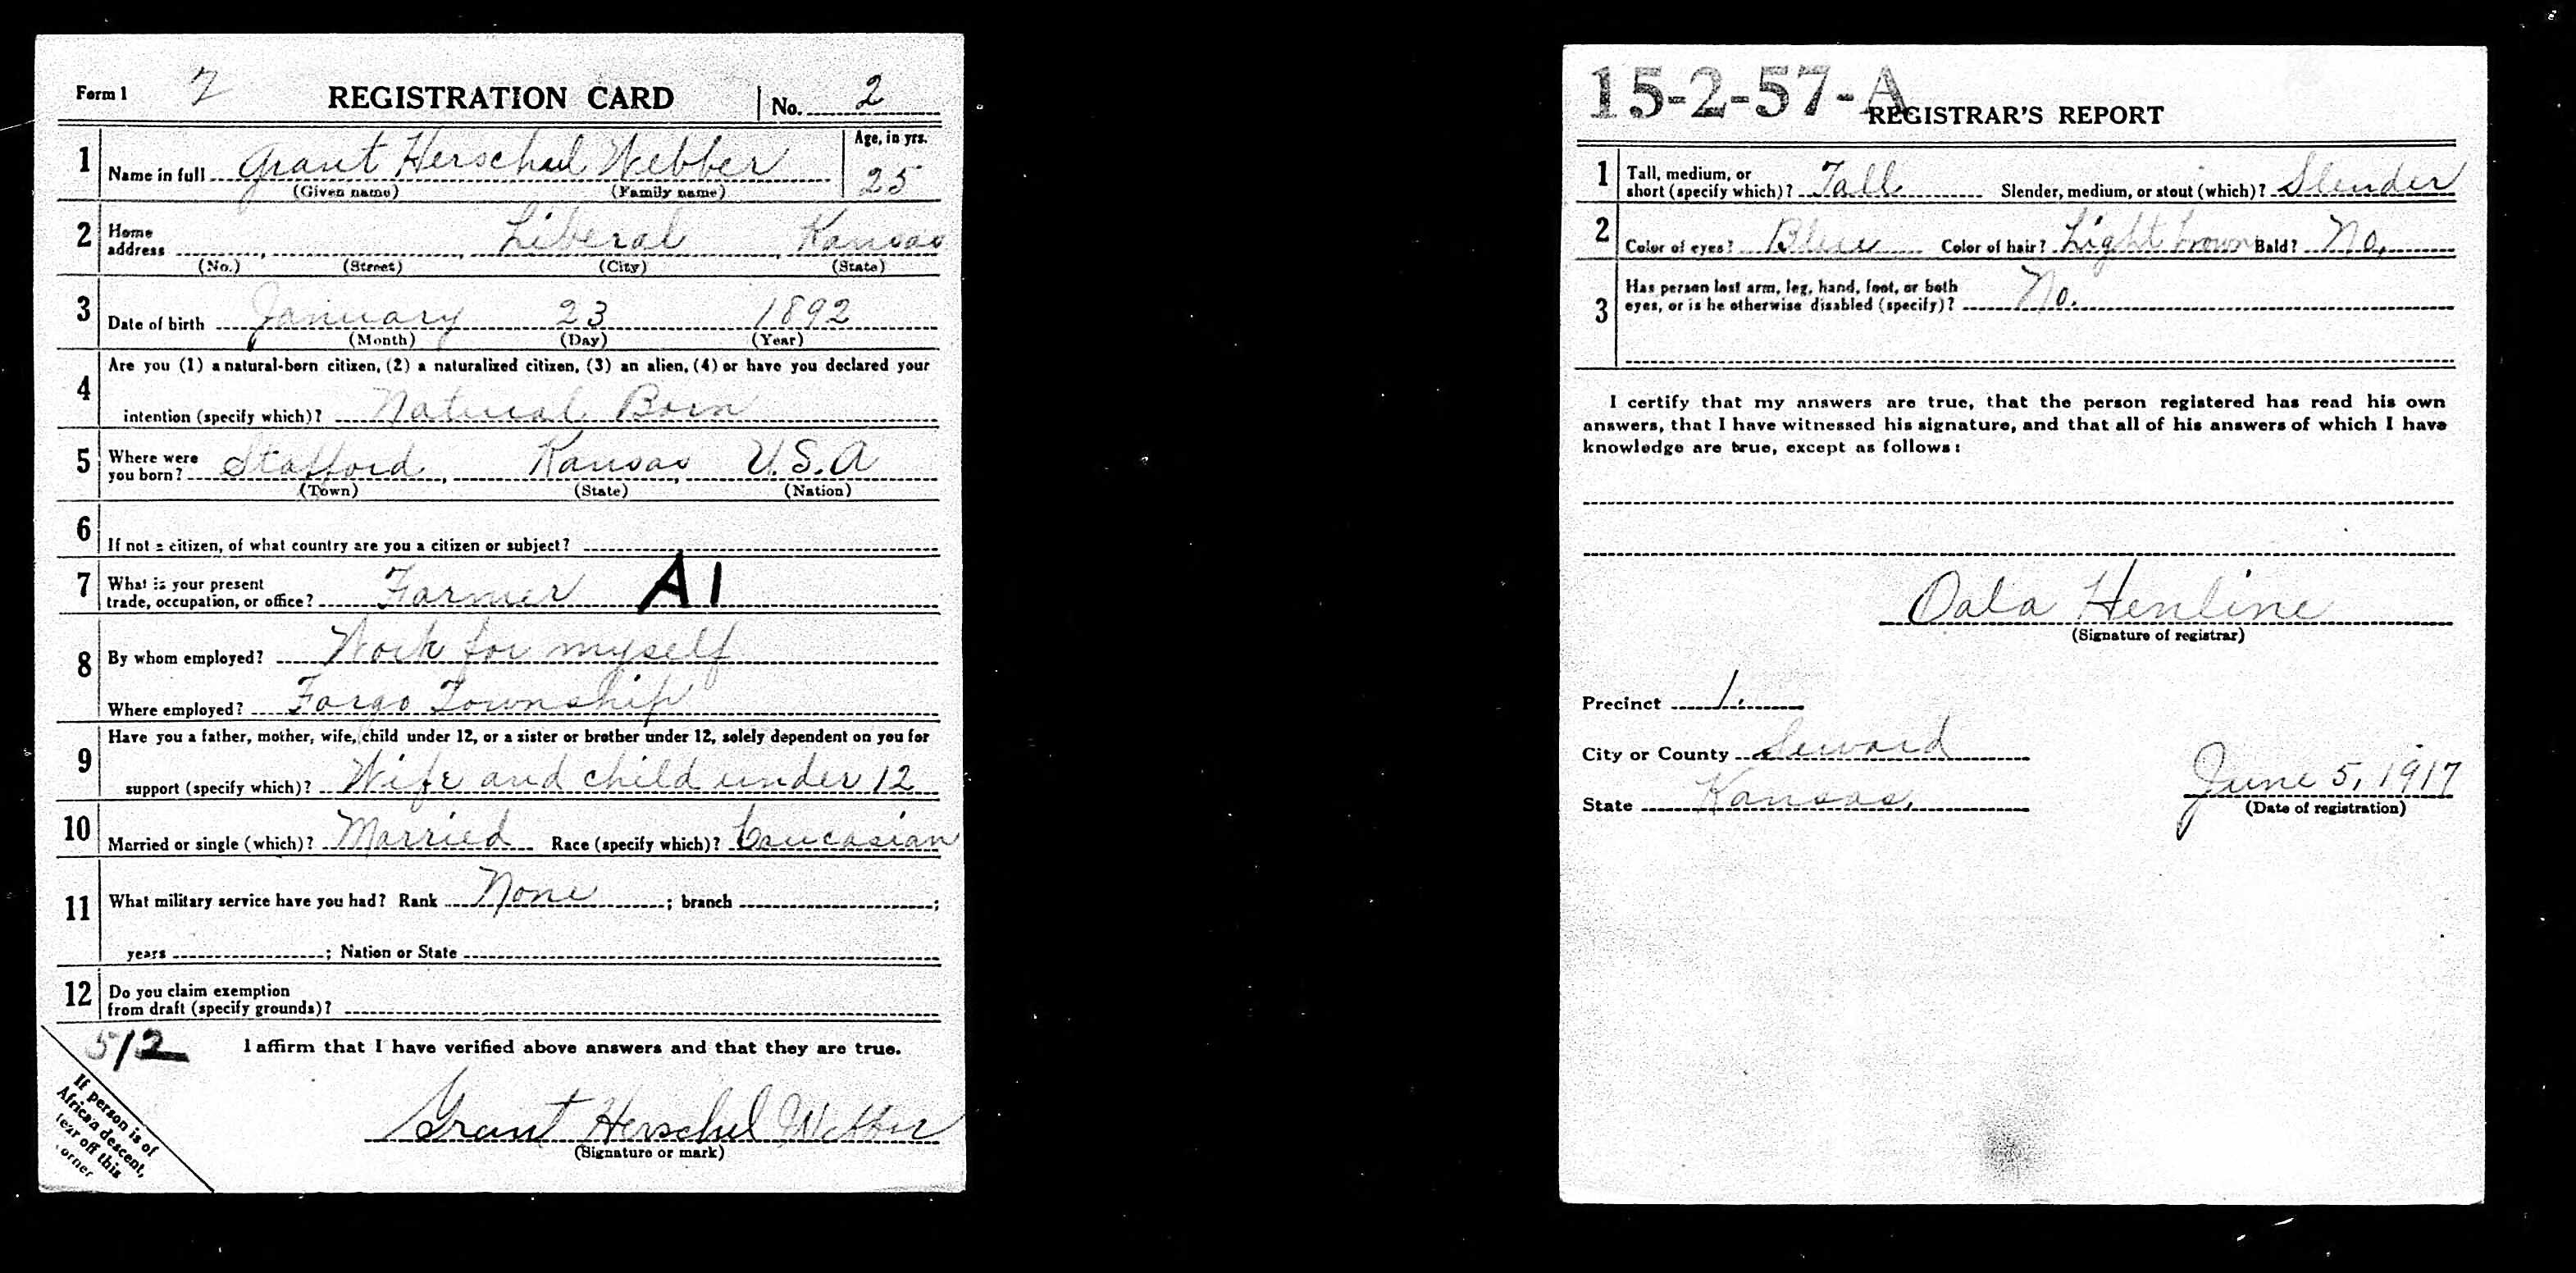 Form 1 2 REGISTRATION CARD No. 2
1 Name in full Grant Herschel Webber Age, in yrs. 25
(Given name) (Family name)
2 Home address Liberal Kansas
(No.) (Street) (City) (State)
3 Date of birth January 23 1892
(Month) (Day) (Year)
4 Are you (1) a natural-born citizen, (2) a naturalized citizen, (3) an alien, (4) or have you declared your
intention (specify which)? Natural Born
5 Where were you born? Stafford, Kansas, U.S.A
(Town) (State) (Nation)
6 If not a citizen, of what country are you a citizen or subject?
7 What is your present
trade, occupation, or office? Farmer A1
8 By whom employed? Work for myself
Where employed? Fargo Township
9 Have you a father, mother, wife, child under 12, or a sister or brother under 12, solely dependent on you for
support (specify which)? Wife and child under 12
10 Married or single (which)? Married Race (specify which)? Caucasian
11 What military service have you had? Rank None ; branch ;
years ; Nation or State
12 Do you claim exemption
from draft (specify grounds)?
512 I affirm that I have verified above answers and that they are true.
Grant Herschel Webber
(Signature or mark)
If person is of
African descent,
tear off this
corner
15-2-57-A
REGISTRAR'S REPORT
1 Tall, medium, or
short (specify which)? Tall Slender, medium, or stout (which)? Slender
2 Color of eyes? Blue Color of hair? Light brown Bald? No.
3 Has person lost arm, leg, hand, foot, or both
eyes, or is he otherwise disabled (specify)? No.
I certify that my answers are true, that the person registered has read his own
answers, that I have witnessed his signature, and that all of his answers of which I have
knowledge are true, except as follows:
Oala Henline
(Signature of registrar)
Precinct 1.
City or County Seward
State Kansas. June 5, 1917
(Date of registration)